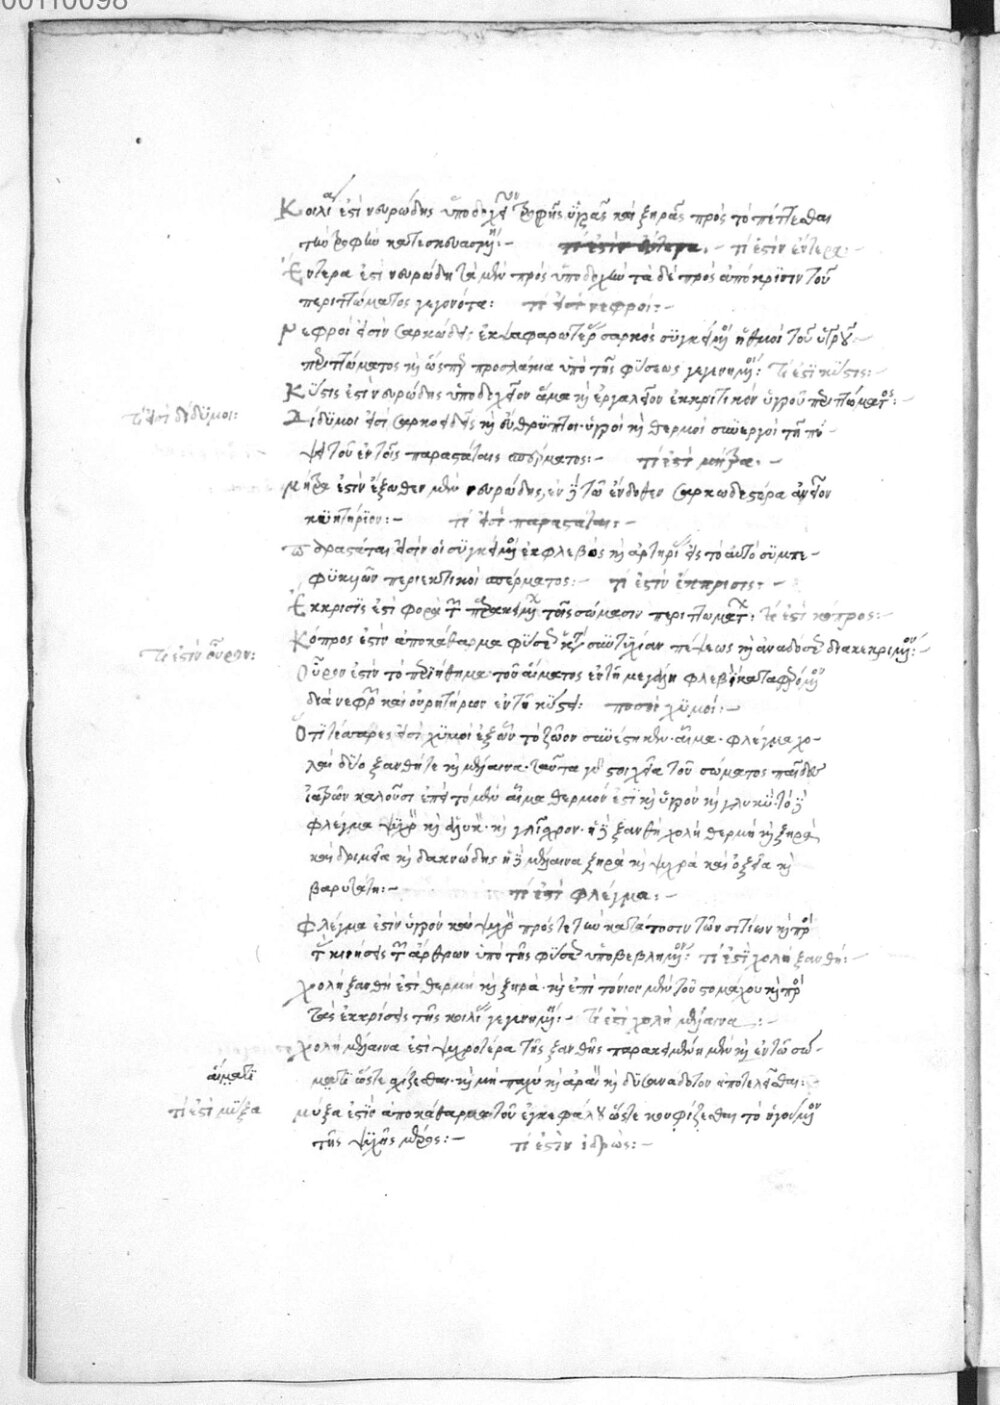 00110098
Κοιλία ἐστὶ νευρώδης ὑποδοχὴ τροφῆς ὑγρᾶς καὶ ξηρᾶς πρὸς τὸ πέττεσθαι
τὴν τροφὴν κατεσκευασμένη:- τί ἐστὶν ἔντερα:-
Ἔντερα ἐστὶ νευρώδη τὰ μὲν πρὸς ὑποδοχὴν τὰ δὲ πρὸς ἀπόκρισιν τοῦ
περιττώματος γεγονότα: τί εἰσὶ νεφροί:-
Νεφροί εἰσὶν σαρκώδεις ἐκ ψαφαρωτέρας σαρκὸς συγκείμενοι ἠθμοὶ τοῦ ὑγροῦ
περιττώματος καὶ ὥσπερ ὑπὸ τῆς φύσεως γεγενημένοι: τί ἐστὶ κύστις:-
Κύστις ἐστὶ νευρώδης ὑποδοχεῖον ἅμα καὶ ἐργαλεῖον ἐκκριτικὸν ὑγροῦ περιττώματος:
τί εἰσὶ δίδυμοι:
Δίδυμοι εἰσὶ σαρκοειδεῖς καὶ εὔθρυπτοι ὑγροὶ καὶ θερμοὶ συνεργοὶ τῇ πέ-
ψει τοῦ ἐν τοῖς παραστάταις σπέρματος:- τί ἐστὶ μήτρα.-
Μήτρα ἐστὶν ἔξωθεν μὲν νευρώδης, ἐν δὲ τῷ ἔνδοθεν σαρκωδεστέρα ἀγγεῖον
κυητήριον:- τί εἰσὶ παραστάται:-
Παραστάται εἰσὶν οἱ συγκείμενοι ἐκ φλεβὸς καὶ ἀρτηρίας εἰς τὸ αὐτὸ συμπε-
φυκυιῶν περιεκτικοὶ σπέρματος:- τί ἐστὶν ἔκκρισις:-
Ἔκκρισις ἐστὶ φορὰ τῶν τοῖς σώμασιν περιττωμάτων: τί ἐστὶ κόπρος:
τί ἐστὶν οὖρον:
Κόπρος ἐστὶν ἀποκάθαρμα φύσει πέψεως καὶ ἀναδόσει διακεκριμένον:-
Οὖρον ἐστὶν τὸ περιήθημα τοῦ αἵματος ἐν τῇ μεγάλῃ φλεβὶ καταφερόμενον
διὰ νεφρῶν καὶ οὐρητήρων ἐν τῇ κύστει: πόσοι χυμοί:-
Ὅτι τέσσαρες εἰσὶ χυμοὶ ἐξ ὧν τὸ ζῷον συνέστηκεν. αἷμα. φλέγμα χο-
λαὶ δύο ξανθή τε καὶ μέλαινα. ταῦτα γὰρ στοιχεῖα τοῦ σώματος παῖδες
ἰατρῶν καλοῦσι ἐπεὶ τὸ μὲν αἷμα θερμόν ἐστὶ καὶ ὑγρὸν καὶ γλυκύ. τὸ δὲ
φλέγμα ψυχρὸν καὶ ἁλυκὸν. καὶ γλίσχρον. ἡ δὲ ξανθὴ χολὴ θερμὴ καὶ ξηρὰ
καὶ δριμεῖα καὶ δακνώδης ἡ δὲ μέλαινα ξηρὰ καὶ ψυχρὰ καὶ ὀξεῖα καὶ
βαρυτάτη:- τί ἐστὶ φλέγμα:-
Φλέγμα ἐστὶν ὑγρὸν καὶ ψυχρὸν πρός τε τὴν κατάποσιν τῶν σιτίων καὶ πρὸς
τὰς κινήσεις τῶν ἄρθρων ὑπὸ τῆς φύσεως ὑποβεβλημένον: τί ἐστὶ χολὴ ξανθή:
χολὴ ξανθὴ ἐστὶ θερμὴ καὶ ξηρὰ. καὶ ἐπὶ τόνιον μὲν τοῦ στομάχου καὶ πρὸς
τὰς ἐκκρίσεις τῆς κοιλίας γεγενημένη:- τί ἐστὶ χολὴ μέλαινα:-
χολὴ μέλαινα ἐστὶ ψυχροτέρα τῆς ξανθῆς παρακειμένη μὲν καὶ ἐν τῷ σώ-
αἵματι
ματι ὥστε σχίζεσθαι. καὶ μὴ παχὺ καὶ ἀραιὸν καὶ δυσανάδοτον ἀποτελεῖσθαι:-
τί ἐστὶ μύξα
μύξα ἐστὶν ἀποκάθαρμα τοῦ ἐγκεφάλου ὥστε κουφίζεσθαι τὸ ἡγούμενον
τῆς ψυχῆς μέρος:- τί ἐστὶν ἱδρώς:-